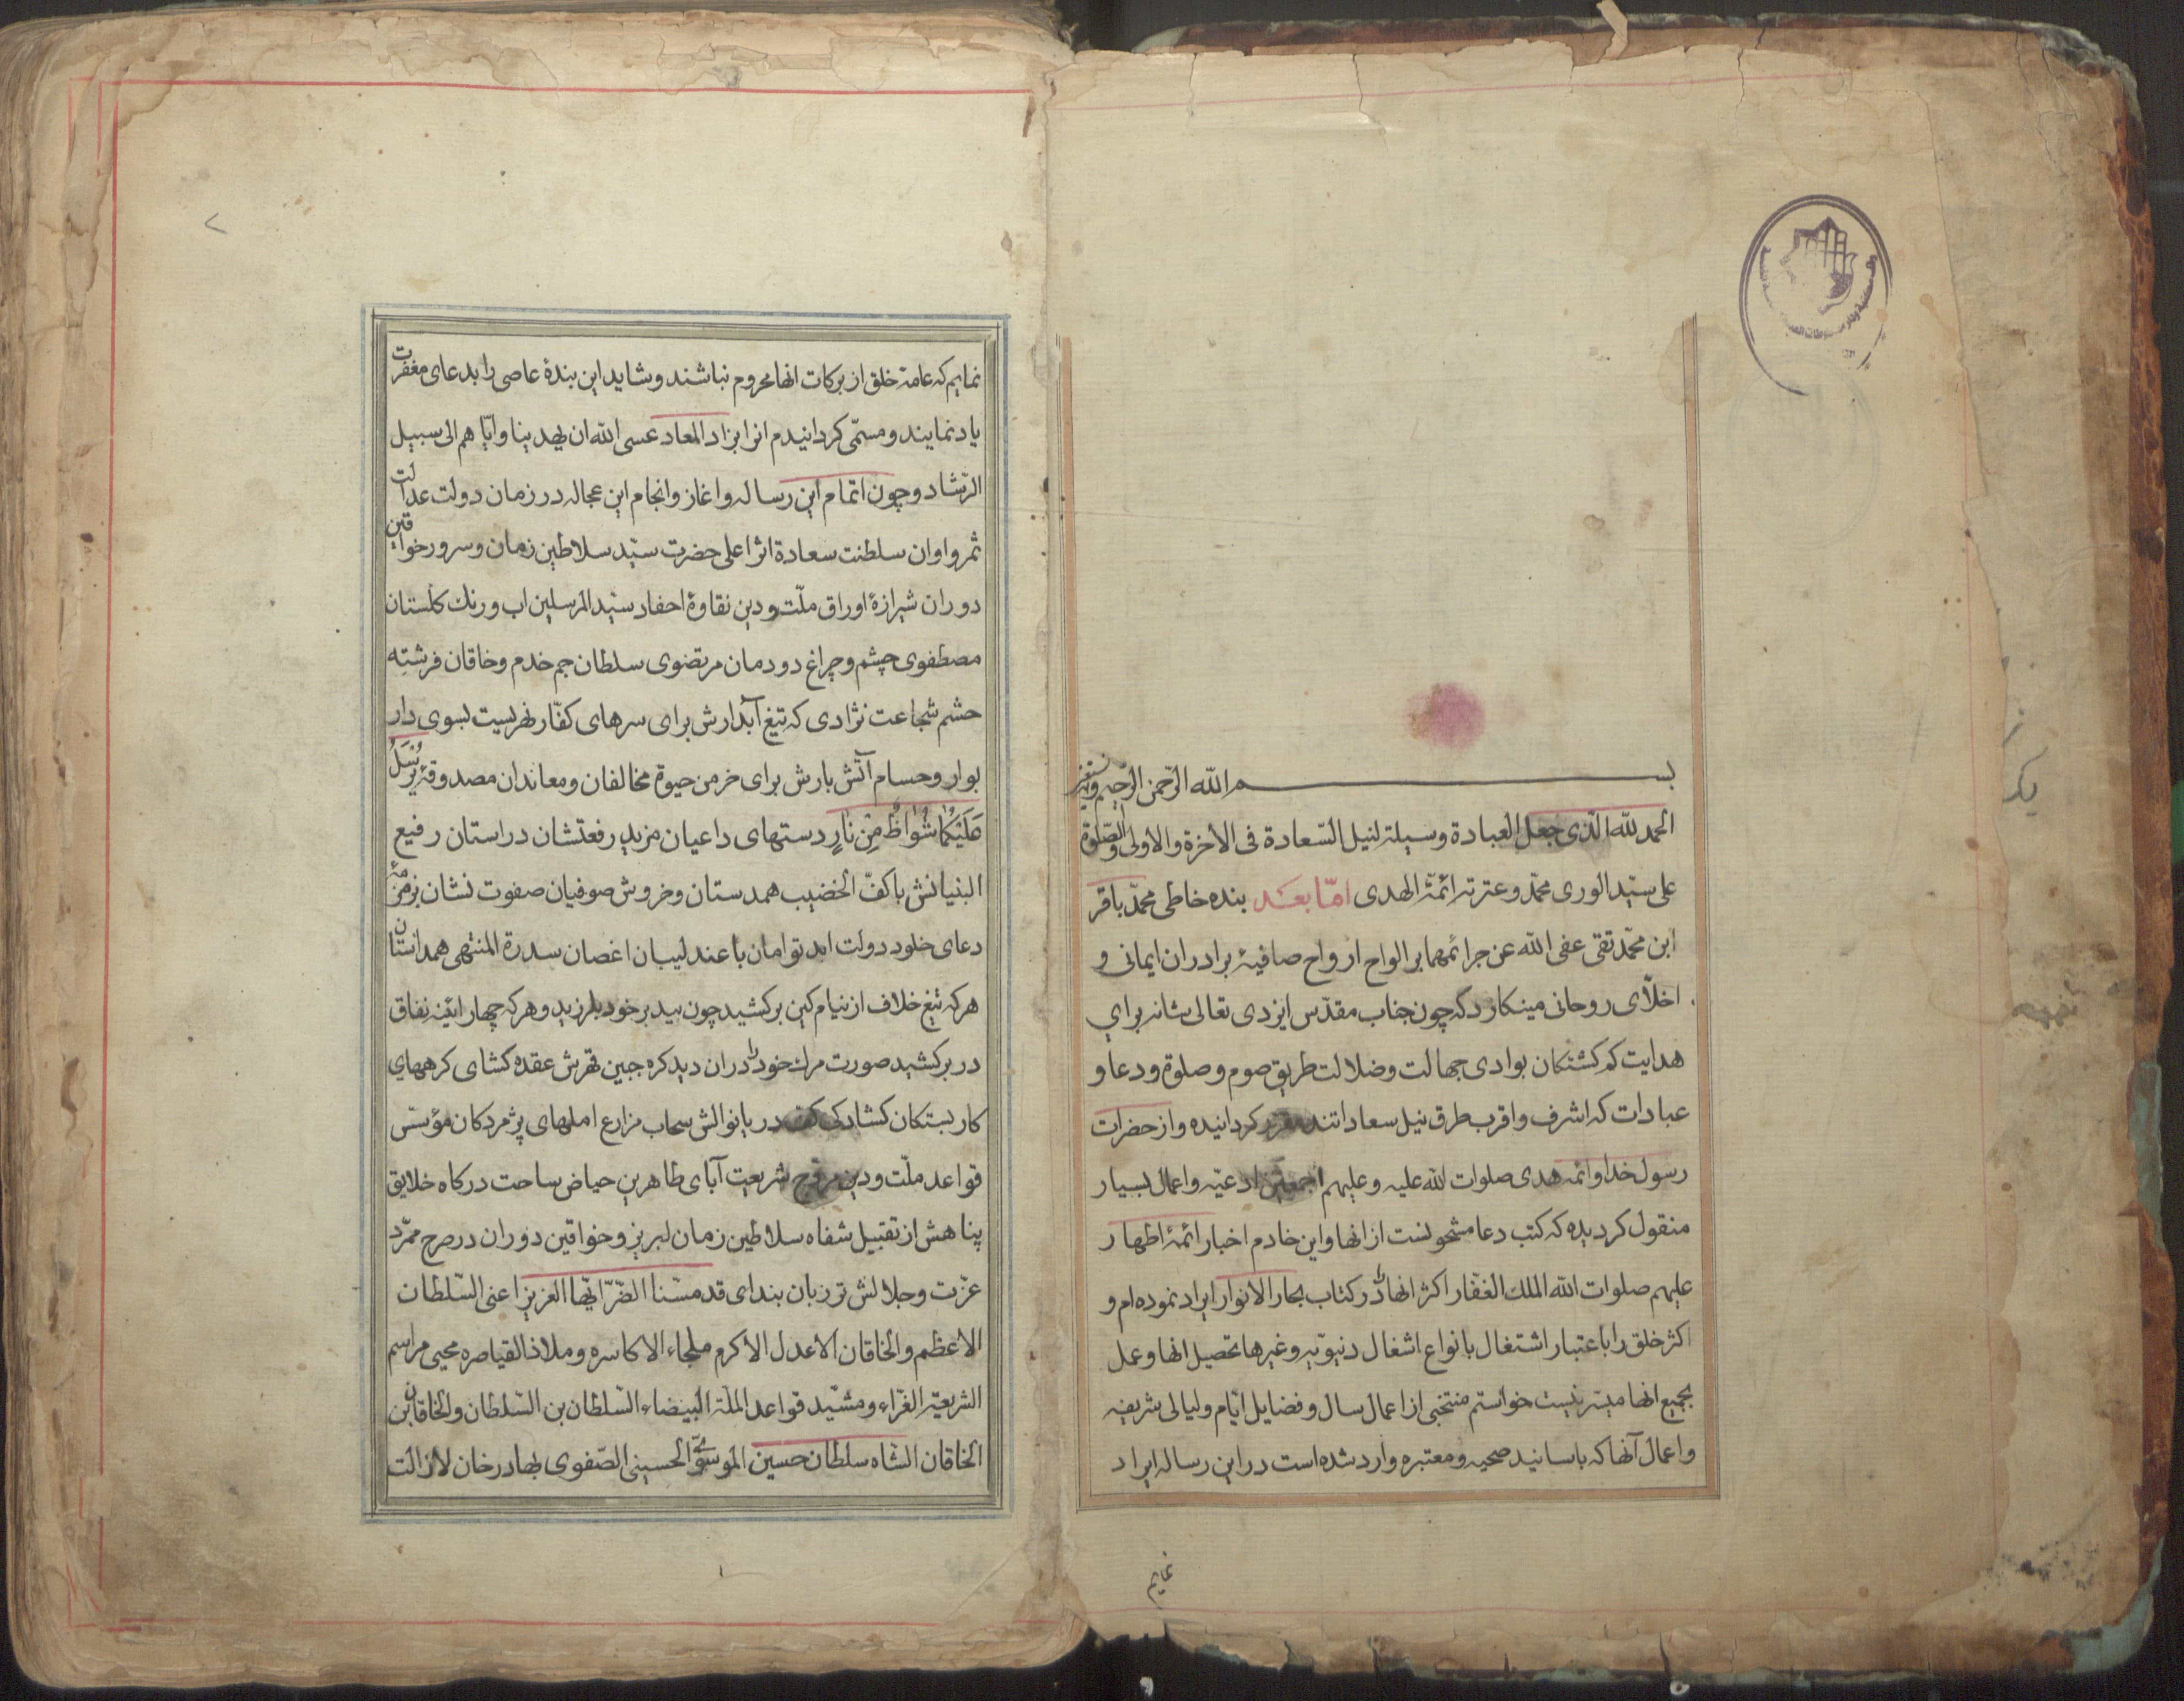 بسم الله الرحمن الرحیم وبه نستعین
الحمد لله الذی جعل العبادة وسیلة لنیل السّعادة فی الآخرة والاولی والصّلوة
علی سیّد الوری محمّد وعترته ائمّة الهدی امّا بعد بنده خاطی محمّد باقر
ابن محمّد تقی عفی الله عن جرائمهما بر الواح ارواح صافیهٔ برادران ایمانی و
اخلّای روحانی مینکارد که چون جناب مقدّس ایزدی تعالی شانه برای
هدایت کم کشتکان بوادی جهالت وضلالت طریق صوم وصلوة ودعا و
عبادات که اشرف واقرب طرق نیل سعاداتند مقرر کردانیده واز حضرات
رسول خدا وائمه هدی صلوات الله علیه وعلیهم اجمعین ادعیّه واعمال بسیار
منقول کردیده که کتب دعا مشحونست از انها واین خادم اخبار ائمّهٔ اطهار
علیهم صلوات الله الملک الغفّار اکثر انها را در کتاب بحار الانوار ایراد نموده ام و
اکثر خلق را باعتبار اشتغال بانواع اشغال دنیویّه وغیرها تحصیل انها وعمل
بجمیع انها میسّر نیست خواستم منتخبی از اعمال سال وفضایل ایّام ولیالی شریفه
واعمال آنها که باسانید صحیحه ومعتبره وارد شده است در این رساله ایراد
نمایم
نمایم که عامهٔ خلق از برکات انها محروم نباشند وشاید این بندهٔ عاصی را بدعای مغفرت
یاد نمایند ومسمّی کردانیدم انرا بزاد المعاد عسی الله ان یهدینا وایّاهم الی سبیل
الرّشاد وچون اتمام این رساله واغاز وانجام این عجاله در زمان دولت عدالت
ثمر واوان سلطنت سعادة اثر اعلی حضرت سیّد سلاطین زمان وسرور خواقین
دوران شیرازهٔ اوراق ملّت ودین نقاوهٔ احفاد سیّد المرسلین اب ورنک کلستان
مصطفوی چشم وچراغ دودمان مرتضوی سلطان جم خدم وخاقان فرشته
حشم شجاعت نژادی که تیغ آبدارش برای سرهای کفّار نهریست بسوی دار
بوار وحسام آتش بارش برای خرمن حیوة مخالفان ومعاندان مصدوقهٔ یُرْسَلُ
عَلَیْکُمَا شُوَاظٌ مِنْ نَارٍ دستهای داعیان مزید رفعتشان در استان رفیع
البنیانش با کفّ الخضیب همدستان وخروش صوفیان صفوت نشان بزمزمهٔ
دعای خلود دولت ابد توامان با عندلیبان اغصان سدرة المنتهی همداستان
هر که تیغ خلاف از نیام کین برکشید چون بید بر خود بلرزید وهر که چهار ائینه نفاق
در بر کشید صورت مرک خود را دران دید کره جبین قهرش عقده کشای کرههای
کار بستکان کشادکی کف دریا نوالش سحاب مزارع املهای پژمردکان مؤسّس
قواعد ملّت ودین مروّج شریعت آبای طاهرین حیاض ساحت درکاه خلایق
پناهش از تقبیل شفاه سلاطین زمان لبریز وخواقین دوران در صرح ممرّد
عزّت وجلالش تر زبان بندای قد مسّنا الضّرّ ایّها العزیز اعنی السّلطان
الاعظم والخاقان الاعدل الاکرم ملجاء الاکاسره وملاذ القیاصره محیی مراسم
الشریعة الغرّاء ومشیّد قواعد الملّة البیضاء السّلطان بن السّلطان والخاقان بن
الخاقان الشاه سلطان حسین الموسوی الحسینی الصّفوی بهادر خان لازالت